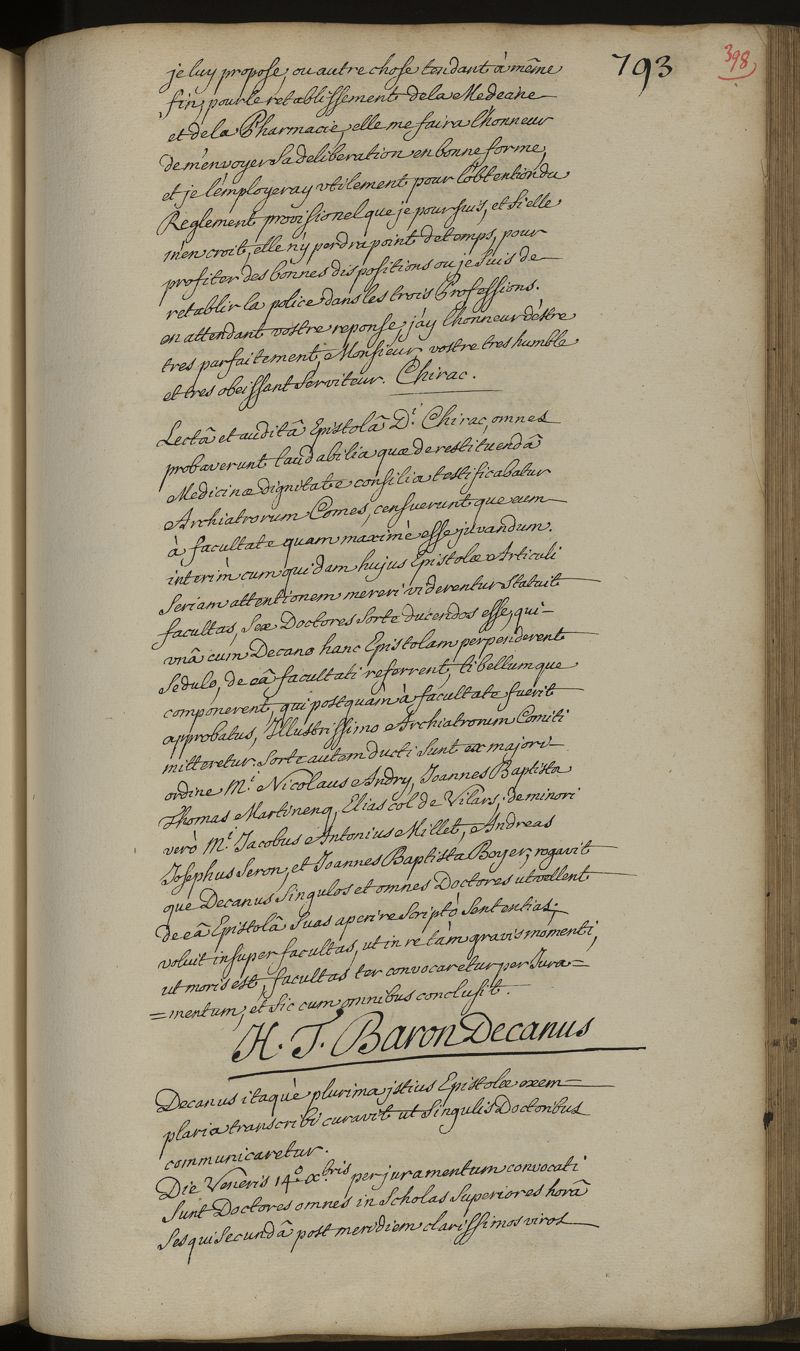 793
398
je luy propose, ou autre chose tendant à même
fin, pour le retablissement de la Medecine
et de la Pharmacie, elle me faira l'honneur
de m'envoyer sa deliberation en bonne forme,
et je l'employeray vtilement pour l'obtention du
Reglement provisionel que je poursuis, et si elle
m'en croit, elle n'y perdra point de temps, pour
profiter des bonnes dispositions ou je suis de
retablir la police dans les trois Professions.
en attendant vostre reponse, j'ay l'honneur d'être
tres parfaitement, Monsieur, vostre tres humble
et tres obeissant serviteur. Chirac.
Lectâ et auditâ Epistolâ D.i Chirac, omnes
probaverunt laudabilia quæ de restituendâ
Medicinæ dignitate consilia testificabatur
Archiatrorum Comes, censuerunt que eum
à facultate quam maximè esse juvandum.
interim cum quidam hujus Epistolæ Articuli
seriam attentionem mereri viderentur statuit
facultas, sex Doctores sorte ducendos esse, qui
vnâ cum Decano hanc Epistolam perpenderent
sedulo, de eâ facultati referrent, libellumque
componerent, qui postquàm à facultate fuerit
approbatus, Illustrissimo Archiatrorum Comiti
mitteretur. Sorte autem ducti sunt ex majori
ordine M.i Nicolaus Andry, Joannes Baptista
Thomas Martinenq, Elias col de Vilars; de minori
verò M.i Jacobus Antonius Millet, Andreas
Josephus Seron, et Joannes Baptista Boyer; rogavit
que Decanus singulos et omnes Doctores ut vellent
de eâ Epistolâ suas aperire scripto sententias;
voluit insuper facultas, ut in re tàm gravis momenti,
ut moris est, facultas ter convocaretur per Jura=
=mentum, et sic cum omnibus conclusit.
H. T. Baron Decanus
Decanus itaquè plurima jstius Epistolæ exem=
plaria transcribi curavit ut singulis Doctoribus
communicaretur.
Die Veneris 14.o x.bris per juramentum convocati
sunt Doctores omnes in Scholas Superiores horâ
sesqui secundâ post meridiem clarissimos viros